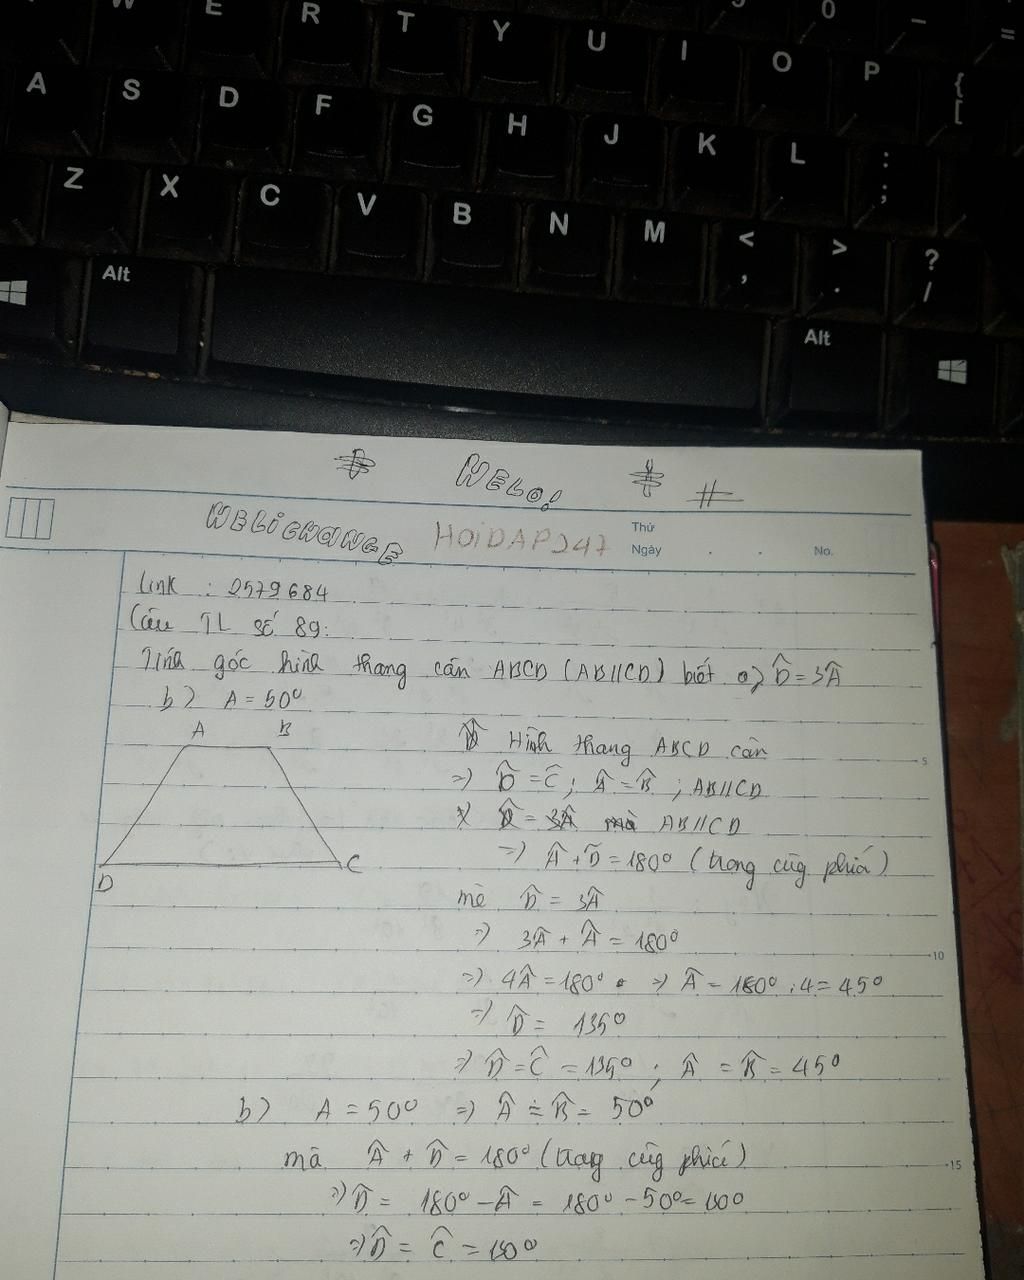 W E R T Y U I O P { [
0 _ =
A S D F G H J K L : ;
Z X C V B N M < , > . ? /
Alt Alt
HELO!
HELICHANGE HOIDAP247
Thứ
Ngày . . No.
Link : 2579684
Câu TL số 89:
Tính góc hình thang cân ABCD (AB//CD) biết a> D̂ = 3Â
b> A = 50°
A B
D C
Hình thang ABCD cân
=> D̂ = Ĉ ; Â = B̂ ; AB//CD
AB//CD
=> Â + D̂ = 180° (trong cùg phiá)
mè D̂ = 3Â
=> 3Â + Â = 180°
=> 4Â = 180° => Â = 180° : 4 = 45°
=> D̂ = 135°
=> D̂ = Ĉ = 135° ; Â = B̂ = 45°
b> A = 50° => Â = B̂ = 50°
mà Â + D̂ = 180° (trong cùg phiá)
=> D̂ = 180° - Â = 180° - 50° = 130°
=> D̂ = Ĉ = 130°
5
10
15